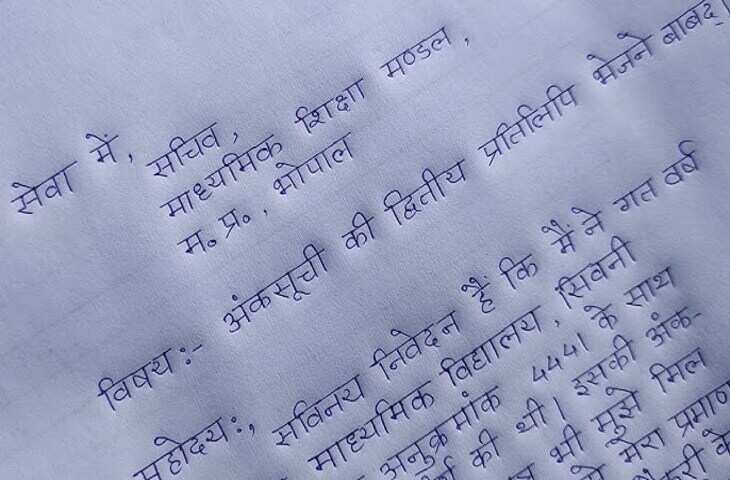 सेवा में,
सचिव,
माध्यमिक शिक्षा मण्डल,
म. प्र., भोपाल
विषय:- अंकसूची की द्वितीय प्रतिलिपि भेजने बाबद्।
महोदय:,
सविनय निवेदन हैं कि मैं ने गत वर्ष
माध्यमिक विद्यालय, सिवनी
अनुक्रमांक 4441 के साथ
की थी। इसकी अंक-
भी मुझे मिल
मेरा प्रमाण